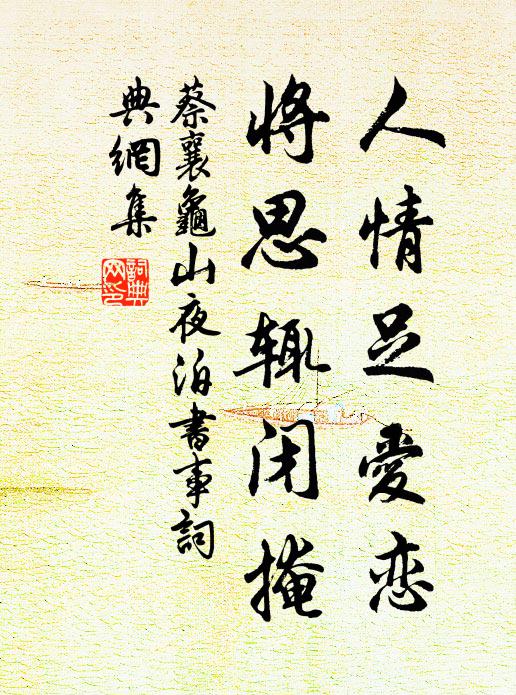 人情足愛恋
将思辄闭掩
蔡襄龜山夜泊書事詞
典網集
詞典网印